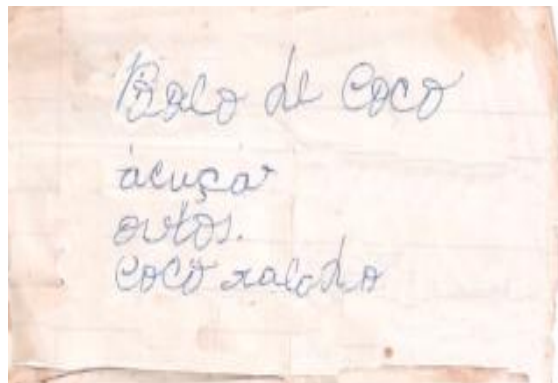 Bolo de coco
acuçar
ovtos.
coco ralodo